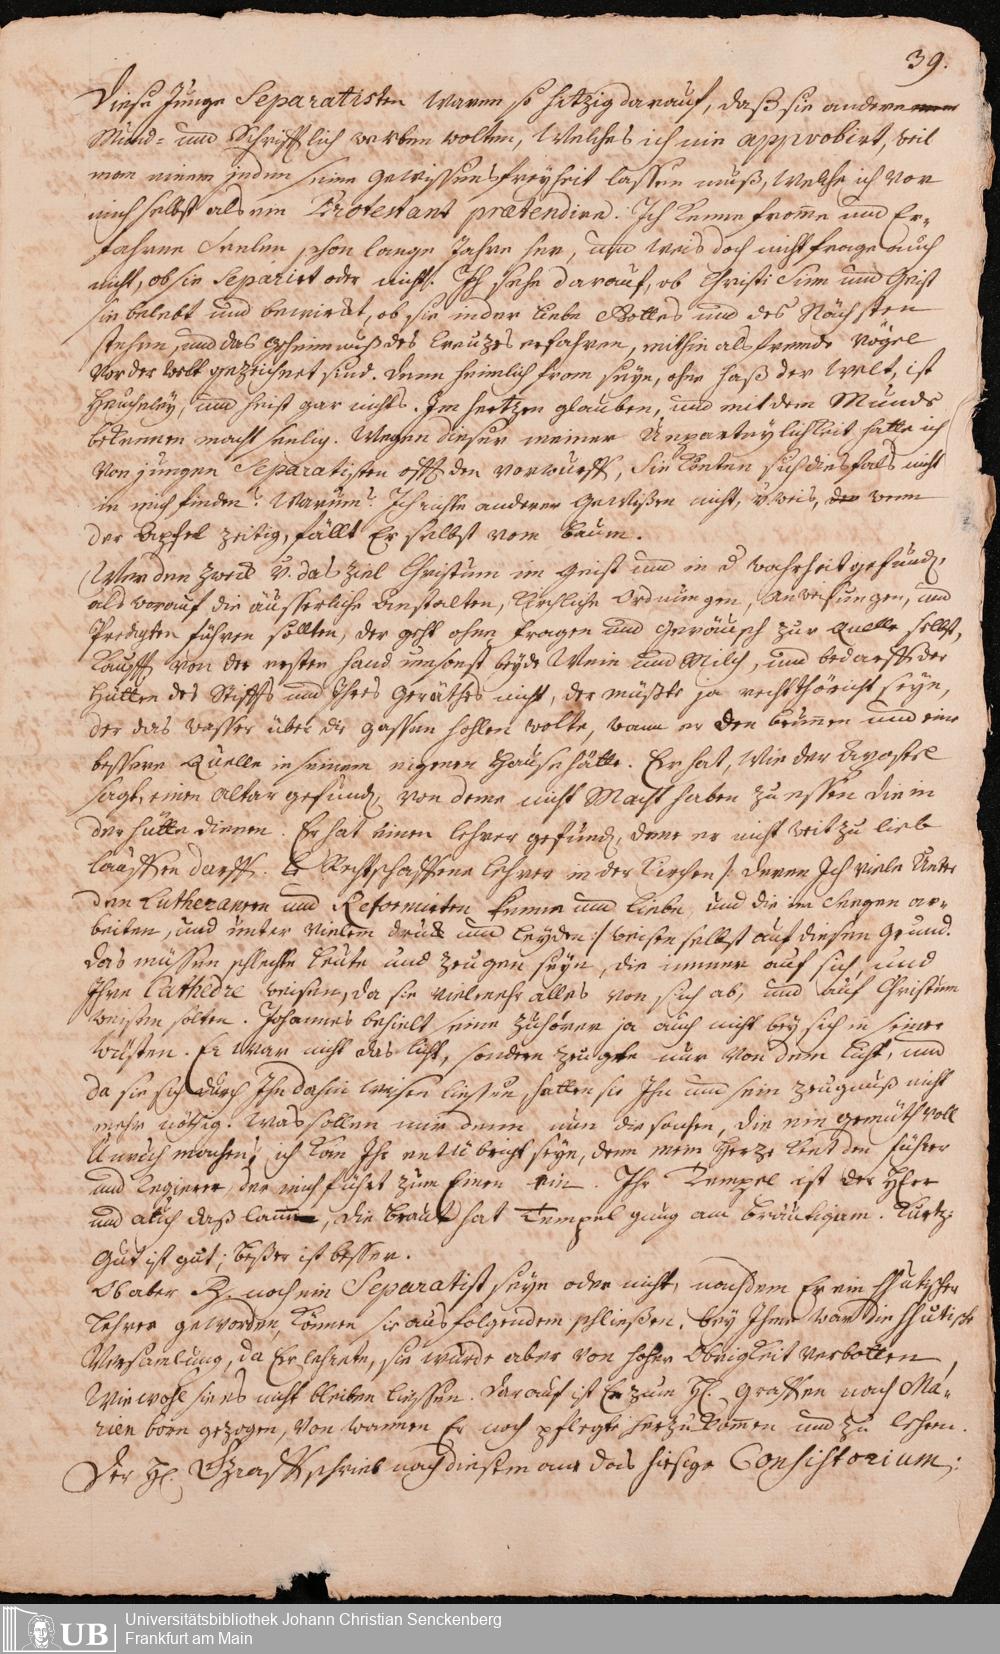 39.
Diese Junge Separatisten waren so hitzig darauf, daß sie andere
Münd= und Schrifftlich werben wolten, welches ich nie approbirt, weil
man einem jeden seine gewissensfreyheit lassen muß, welche ich vor
mich selbst als ein Protestant prætendire. Ich kenne fromme und Er=
fahrne Seelen schon lange Jahre her, und weis doch nicht frage auch
nicht, ob sie Separirt oder nicht. Ich sehe darauf, ob Christi Sinn und Geist
sie belebt und bewirckt, ob sie in der Liebe Gottes und des Nächsten
stehen, und das geheimnuß des Creuzes erfahren, mithin als fremde Vögel
von der Welt gezeichnet sind. Denn heimlich from seyn, ohne Haß der Welt, ist
Heucheley, und heist gar nichts. Im hertzen glauben, und mit dem Munde
bekennen macht seelig. Wegen dieser meiner Unpartheylichkeit hatte ich
von jungen Separatisten offt den vorwurff, sie könten sich diesfals nicht
in mich finden. Warum? Ich richte anderer Gewißen nicht, u. weis, wenn
der Apfel zeitig, fällt Er selbst vom baum.
Wer den Zweck u. das Ziel Christum im Geist und in d wahrheit gefund,
als worauf die äusserliche Anstalten, Kirchliche Ordnungen, Anweisungen, und
Predigten führen sollten, der geht ohne fragen und Geräusch zur Quelle selbst,
Kaufft von der ersten hand umsonst beyde Wein und Milch, und bedarff der
Hütten des Stiffts und Ihres Geräthes nicht, der müßte ja recht thöricht seyn,
der das wasser über die gassen hohlen wolte, wann er den brunnen und eine
bessere Quelle in seinem eigenen Hause hätte. Er hat, wie der Apostel
sagt, einen Altar gefund, von deme nicht Macht haben zu essen die in
der hütte dienen. Er hat einen lehrer gefund, deme er nicht weit zu lieb
lauffen darff. Rechtschaffene lehrer in der Kirchen /: deren Ich viele Unter
den Lutheranern und Reformirten kenne und liebe, und die im Seegen ar=
beiten, und unter vielem druck und leyden :/ weisen selbst auf diesen Grund.
Das müssen schlechte Leute und Zeugen seyn, die immer auf sich, und
Ihre Cathedre weisen, da sie vielmehr alles von sich ab, und auf Christum
weisen solten. Johannes behielt seine Zuhörer ja auch nicht bey sich in seiner
Wüsten. Er war nicht das licht, sondern Zeugete nur von dem Licht, und
da sie sich durch Ihn dahin weisen liessen, hatten sie Ihn und sein Zeugnuß nicht
mehr nöthig. Was sollen mir denn nun die sachen, die ein gemüth voll
Unruh machen; ich kan Ihr entübrigt seyn, denn mein Hertze kent den Führer
und Regierer, der mich führt zum Einen ein. Ihr Tempel ist der HErr
und auch daß lamm, die braut hat Tempel gnug am bräutigam. Kurtz:
Gut ist gut; beßer ist besser.
Ob aber R. noch ein Separatist seye oder nicht, nachdem Er ein
Lehrer geworden, können sie aus folgendem schließen. bey Ihme war die
Versamlung, da Er lehrete, sie wurde aber von hoher Obrigkeit verbotten,
Wiewohl sie es nicht bleiben liessen. Darauf ist Er zum H. Graffen nach Ma=
rienborn gezogen, von wannen Er noch pflegte her zu kommen und zu lehren.
Der H. Graff schrieb nach diesem an das hiesige Consistorium:
Universitätsbibliothek Johann Christian Senckenberg
Frankfurt am Main
UB